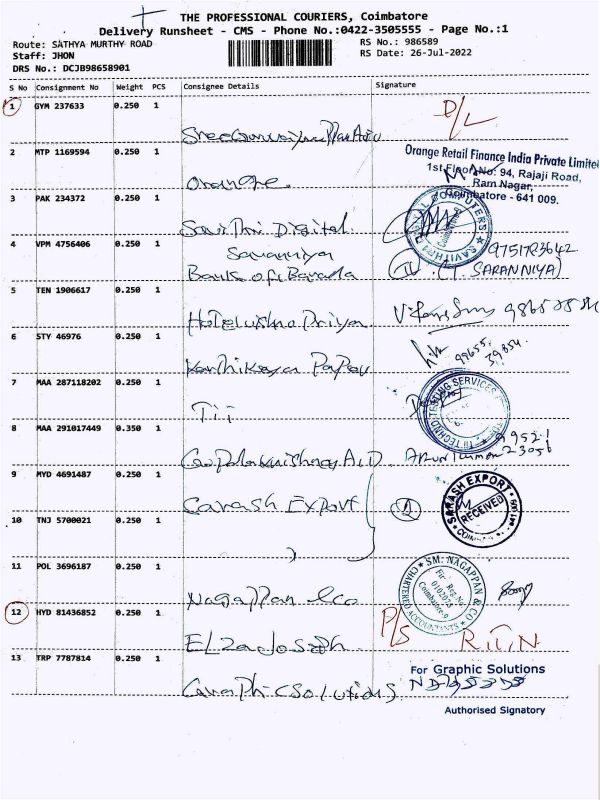 THE PROFESSIONAL COURIERS, Coimbatore
Delivery Runsheet - CMS - Phone No.:0422-3505555 - Page No.:1
Route: SATHYA MURTHY ROAD
Staff: JHON
DRS No.: DCJB98658901
RS No.: 986589
RS Date: 26-Jul-2022
S No Consignment No Weight PCS Consignee Details Signature
1 GYM 237633 0.250 1
D/L
2 MTP 1169594 0.250 1
Orange
Orange Retail Finance India Private Limited
1st Floor No: 94, Rajaji Road,
Ram Nagar,
Coimbatore - 641 009.
3 PAK 234372 0.250 1
Savithri Digital
4 VPM 4756406 0.250 1
Saranniya
Bank of Baroda
(T. SARANNIYA)
5 TEN 1906617 0.250 1
Hotel Vishnu Priya
6 STY 46976 0.250 1
Karthikeya Papers
7 MAA 287118202 0.250 1
TII
8 MAA 291017449 0.350 1
Gopalakrishnan A.D
9 MYD 4691487 0.250 1
Carash Export
SARASH EXPORT
RECEIVED
10 TNJ 5700021 0.250 1
11 POL 3696187 0.250 1
Nagappan & Co
SM. NAGAPPAN & CO
CHARTERED ACCOUNTANTS
12 HYD 81436852 0.250 1
P/S R.T.N
13 TRP 7787814 0.250 1
Graphic Solutions
For Graphic Solutions
Authorised Signatory